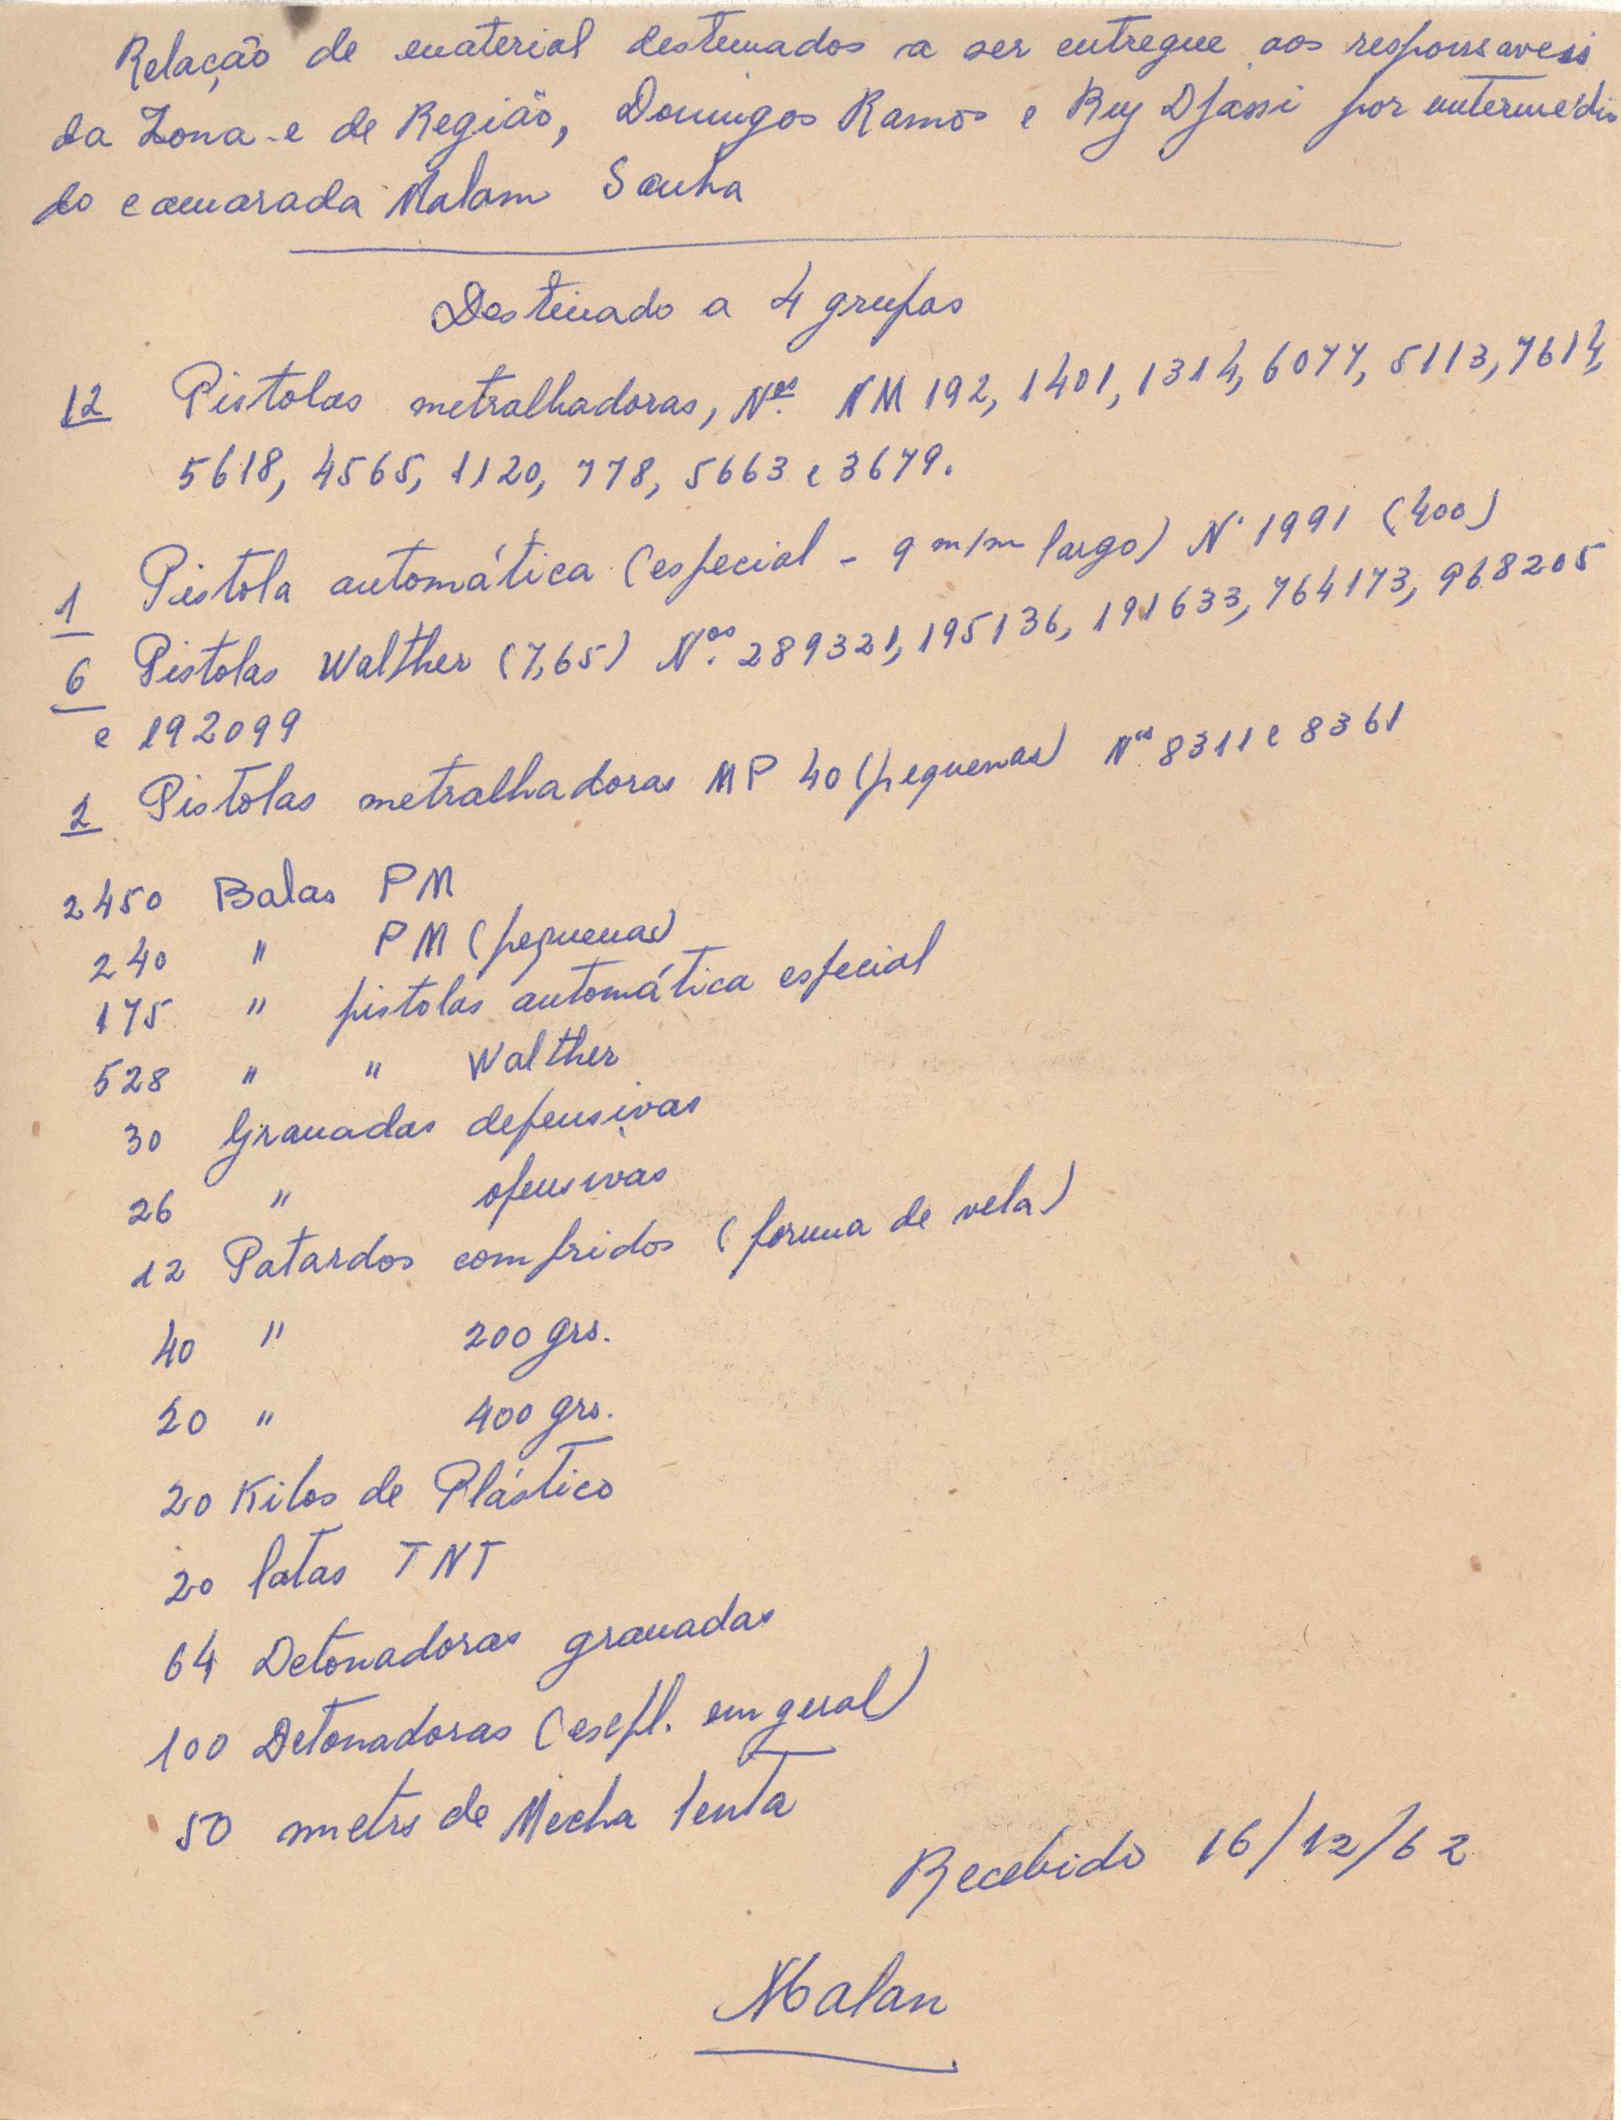 Relação de material destinados a ser entregue aos responsaveis
da Zona e de Região, Domingos Ramos e Ruy Djassi por intermédio
do camarada Malam Sanha
Destinado a 4 grupos
12 Pistolas metralhadoras, Nos. NM 192, 1401, 1314, 6077, 5113, 7614,
5618, 4565, 1120, 778, 5663 e 3679.
1 Pistola automática (especial - 9 m/m largo) Nº 1991 (400)
6 Pistolas Walther (7,65) Nos. 289321, 195136, 191633, 764173, 968205
e 192099
2 Pistolas metralhadoras MP 40 (pequenas) Nos 8311 e 8361
2450 Balas PM
240 " PM (pequenas)
175 " pistolas automática especial
528 " " Walther
30 Granadas defensivas
26 " ofensivas
12 Patardos compridos (forma de vela)
40 " 200 grs.
20 " 400 grs.
20 Kilos de Plástico
20 latas TNT
64 Detonadoras granadas
100 Detonadoras (expl. em geral)
50 metrs de Mecha lenta
Recebido 16/12/62
Malan